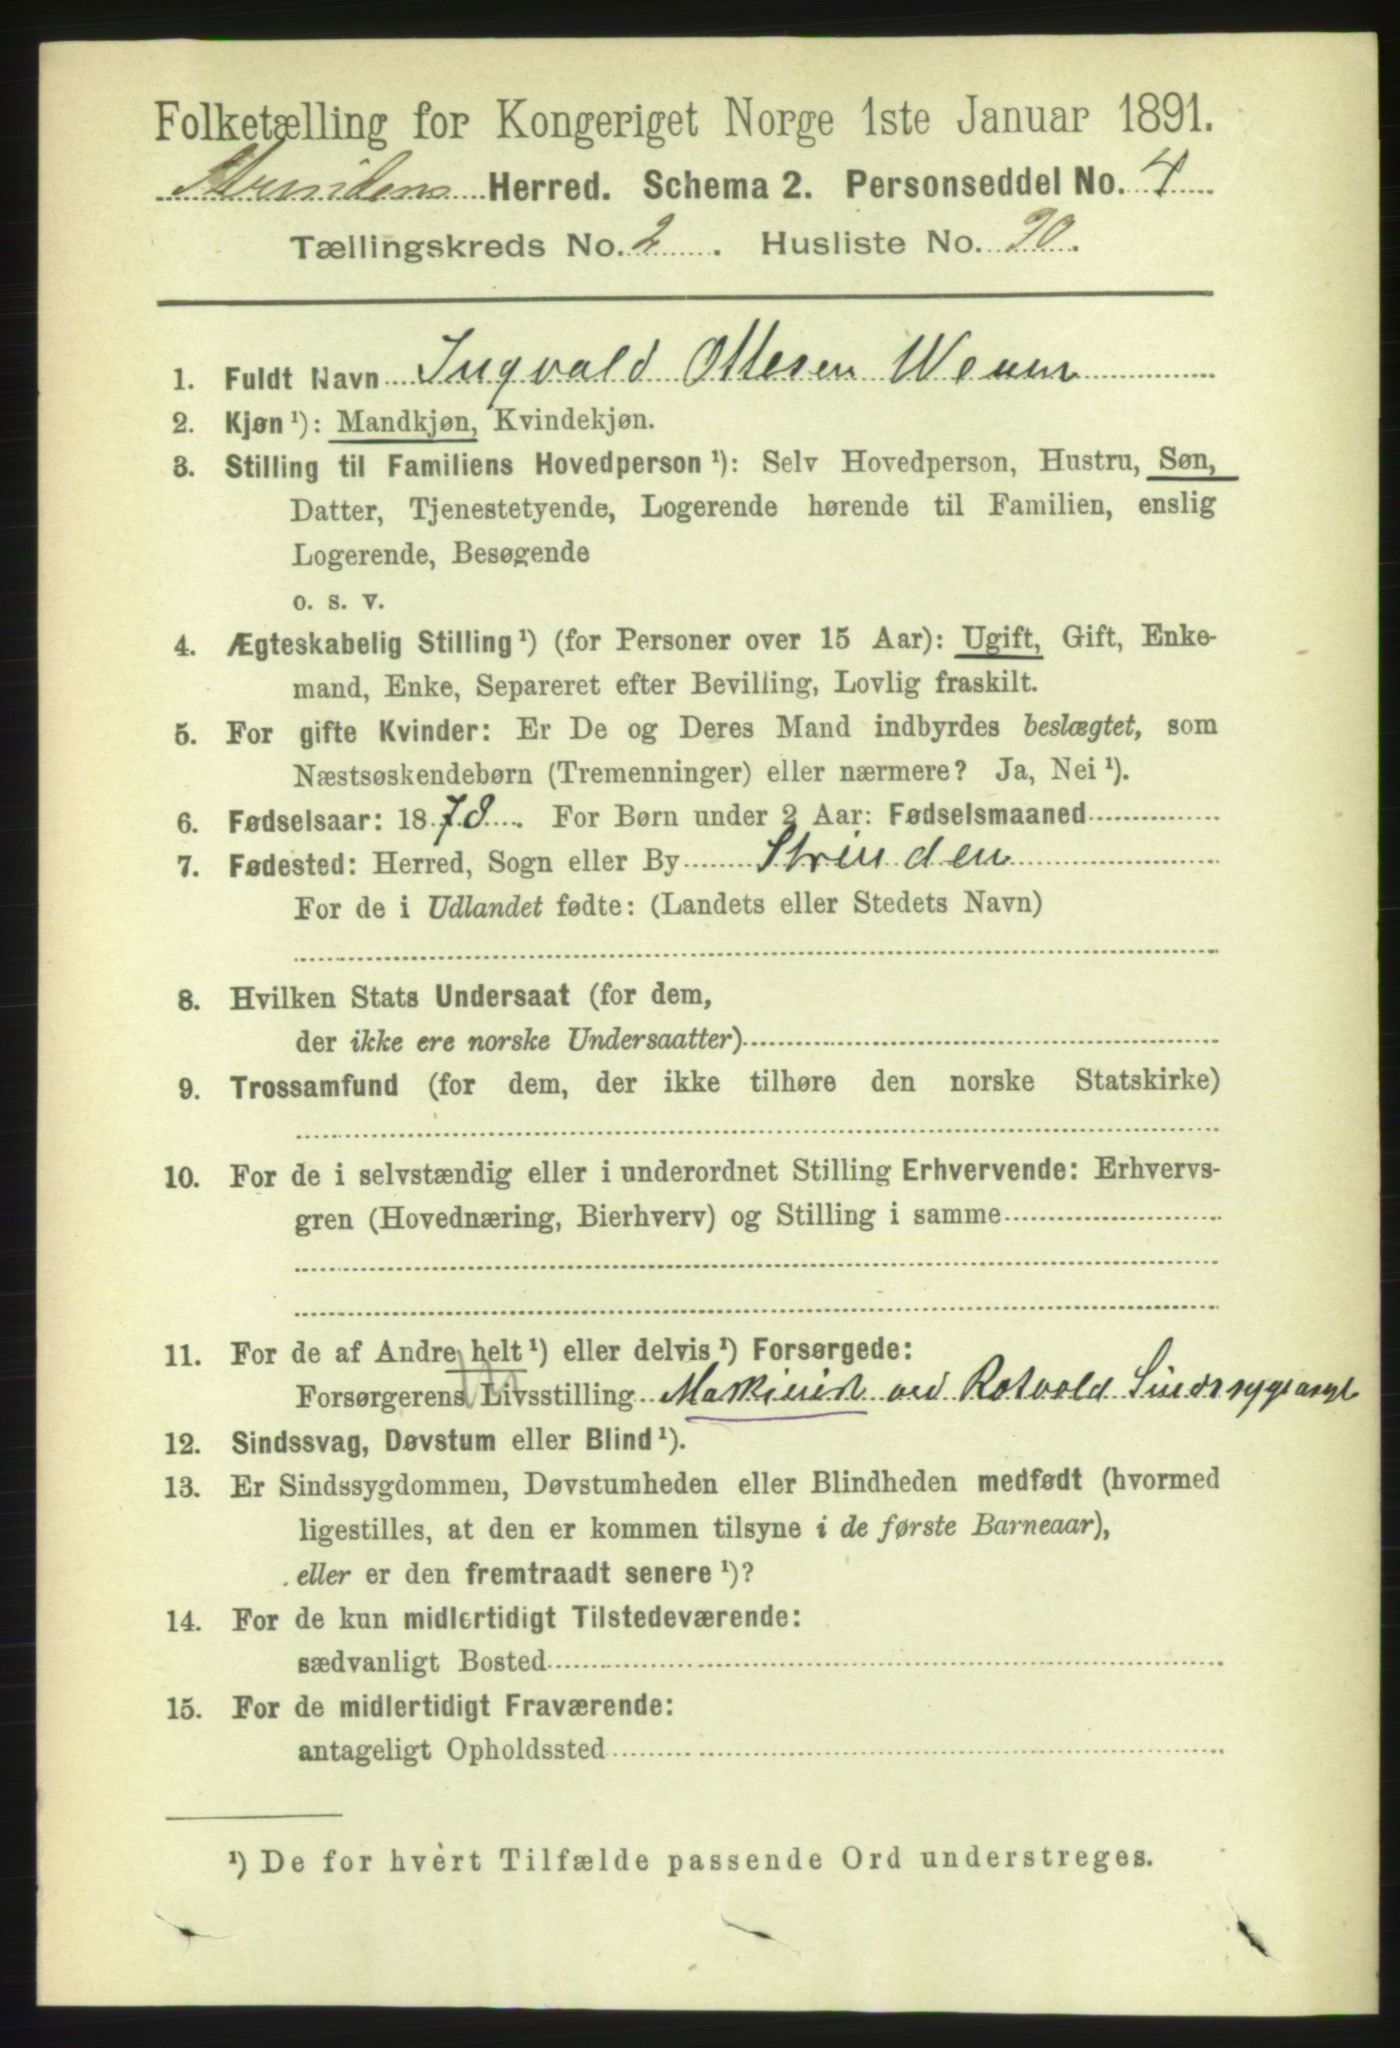 Folketælling for Kongeriget Norge 1ste Januar 1891.
Strindens Herred. Schema 2. Personseddel No. 4
Tællingskreds No. 2. Husliste No. 20.
1. Fuldt Navn Ingvald Ottesen
2. Kjøn ¹): Mandkjøn, Kvindekjøn.
3. Stilling til Familiens Hovedperson ¹): Selv Hovedperson, Hustru, Søn,
Datter, Tjenestetyende, Logerende hørende til Familien, enslig
Logerende, Besøgende
o. s. v.
4. Ægteskabelig Stilling ¹) (for Personer over 15 Aar): Ugift, Gift, Enke-
mand, Enke, Separeret efter Bevilling, Lovlig fraskilt.
5. For gifte Kvinder: Er De og Deres Mand indbyrdes beslægtet, som
Næstsøskendebørn (Tremenninger) eller nærmere? Ja, Nei ¹).
6. Fødselsaar: 1878. For Børn under 2 Aar: Fødselsmaaned
7. Fødested: Herred, Sogn eller By Strinden
For de i Udlandet fødte: (Landets eller Stedets Navn)
8. Hvilken Stats Undersaat (for dem,
der ikke ere norske Undersaatter)
9. Trossamfund (for dem, der ikke tilhøre den norske Statskirke)
10. For de i selvstændig eller i underordnet Stilling Erhvervende: Erhvervs-
gren (Hovednæring, Bierhverv) og Stilling i samme
11. For de af Andre helt ¹) eller delvis ¹) Forsørgede:
Forsørgerens Livsstilling Maskinist ved Rotvold Sindssygeasyl
12. Sindssvag, Døvstum eller Blind ¹).
13. Er Sindssygdommen, Døvstumheden eller Blindheden medfødt (hvormed
ligestilles, at den er kommen tilsyne i de første Barneaar),
eller er den fremtraadt senere ¹)?
14. For de kun midlertidigt Tilstedeværende:
sædvanligt Bosted
15. For de midlertidigt Fraværende:
antageligt Opholdssted
¹) De for hvert Tilfælde passende Ord understreges.